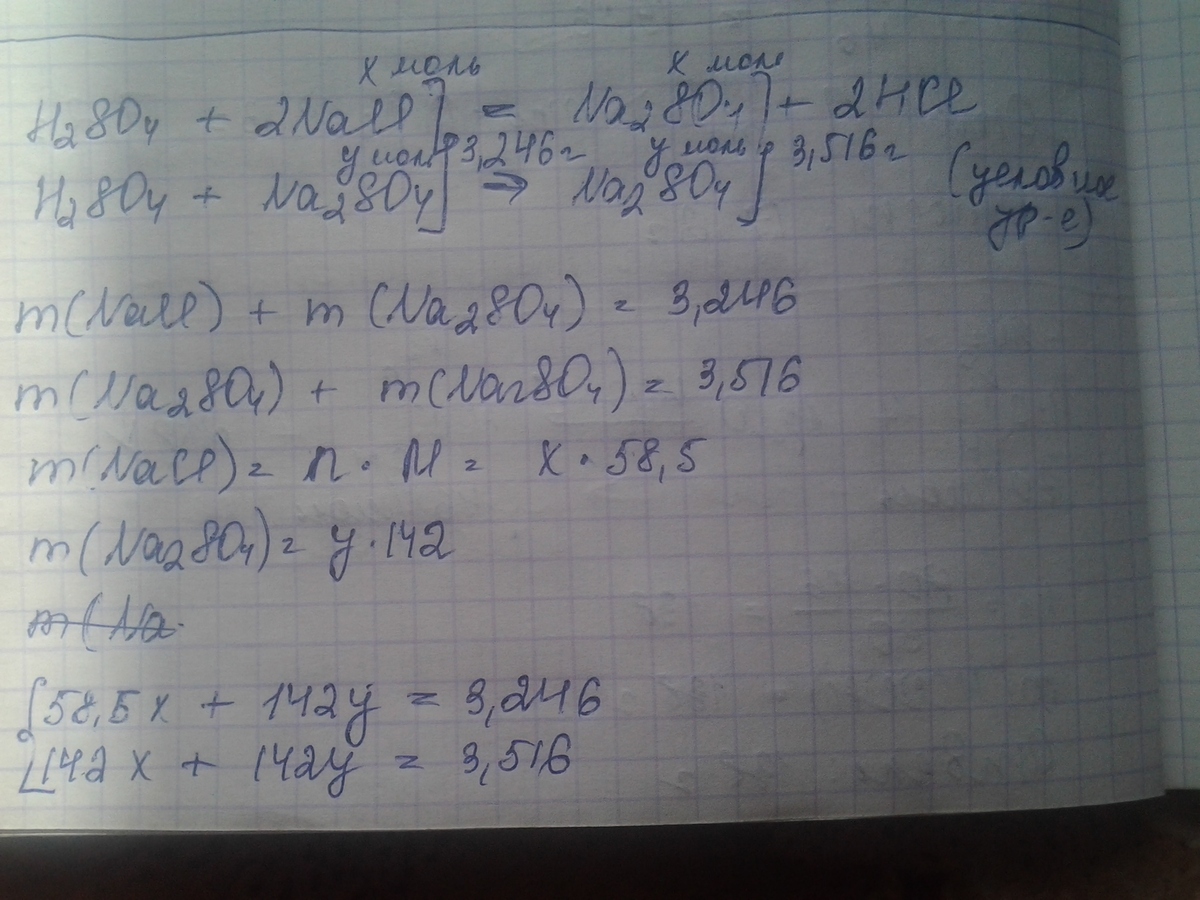 x моль x моль
H₂SO₄ + 2NaCl ] = Na₂SO₄ ] + 2HCl
y моль 3,246 г y моль 3,516 г
H₂SO₄ + Na₂SO₄ ] ⇒ Na₂SO₄ ] (условное
ур-е)
m(NaCl) + m (Na₂SO₄) = 3,246
m(Na₂SO₄) + m(Na₂SO₄) = 3,516
m(NaCl) = n · M = x · 58,5
m(Na₂SO₄) = y · 142
m(Na
[ 58,5 x + 142y = 3,246
[ 142 x + 142y = 3,516